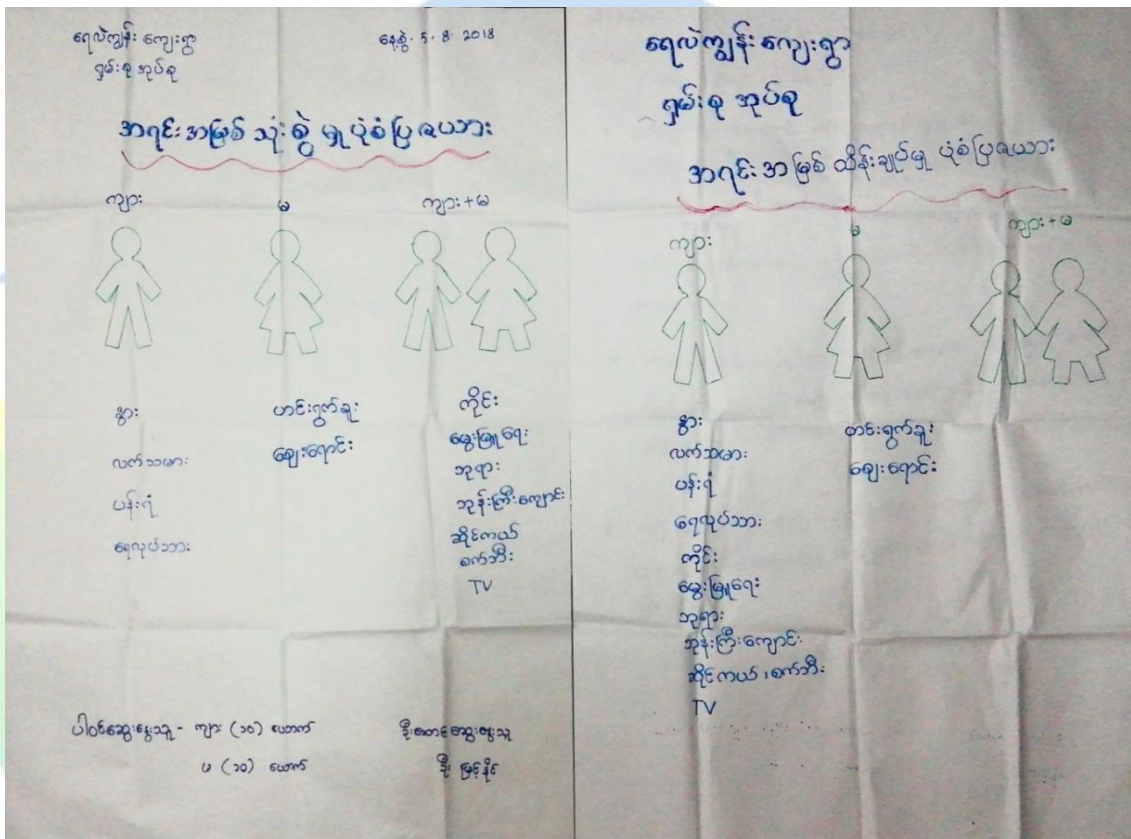 ရေလဲကျွန်း ကျေးရွာ
ရှမ်းစု အုပ်စု
နေ့စွဲ. 5. 8. 2018
အရင်းအမြစ် သုံးစွဲ မှု ပုံစံပြဇယား
ကျား
မ
ကျား+မ
နွား
လက်သမား
ပန်းရံ
ရေလုပ်သား
ဟင်းရွက်ခူး
ဈေးရောင်း
ကိုင်း
မွေးမြူရေး
ဘုရား
ဘုန်းကြီးကျောင်း
ဆိုင်ကယ်
စက်ဘီး
TV
ပါဝင်ဆွေးနွေးသူ - ကျား (၁၀) ယောက်
မ (၁၀) ယောက်
ဦးဆောင်ဆွေးနွေးသူ
ဦး မြင့်နိုင်
ရေလဲကျွန်း ကျေးရွာ
ရှမ်းစု အုပ်စု
အရင်းအမြစ် ထိန်းချုပ်မှု ပုံစံပြဇယား
ကျား
မ
ကျား+မ
နွား
လက်သမား
ပန်းရံ
ရေလုပ်သား
ကိုင်း
မွေးမြူရေး
ဘုရား
ဘုန်းကြီးကျောင်း
ဆိုင်ကယ် ၊ စက်ဘီး
TV
ဟင်းရွက်ခူး
ဈေးရောင်း